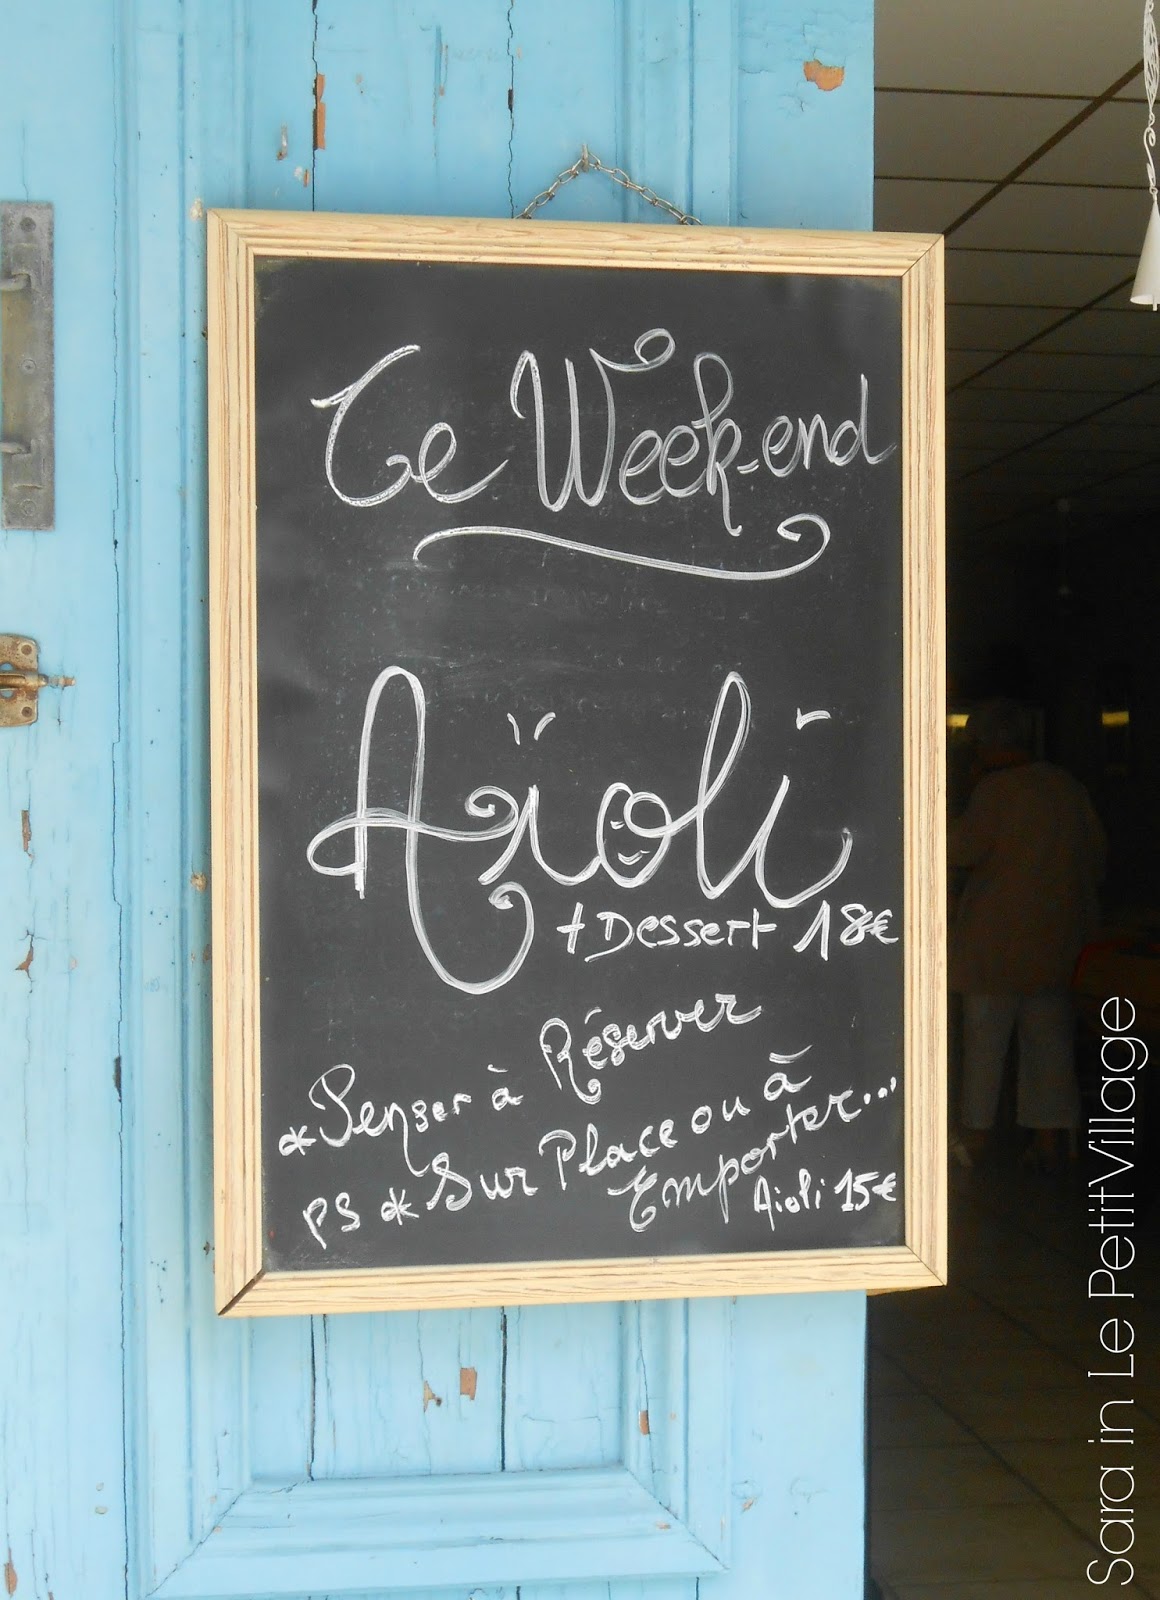 Ce Week-end
Aïoli
+ Dessert 18€
* Penser à Réserver
PS * Sur Place ou à
Emporter...
Aioli 15€
Sara in Le Petit Village